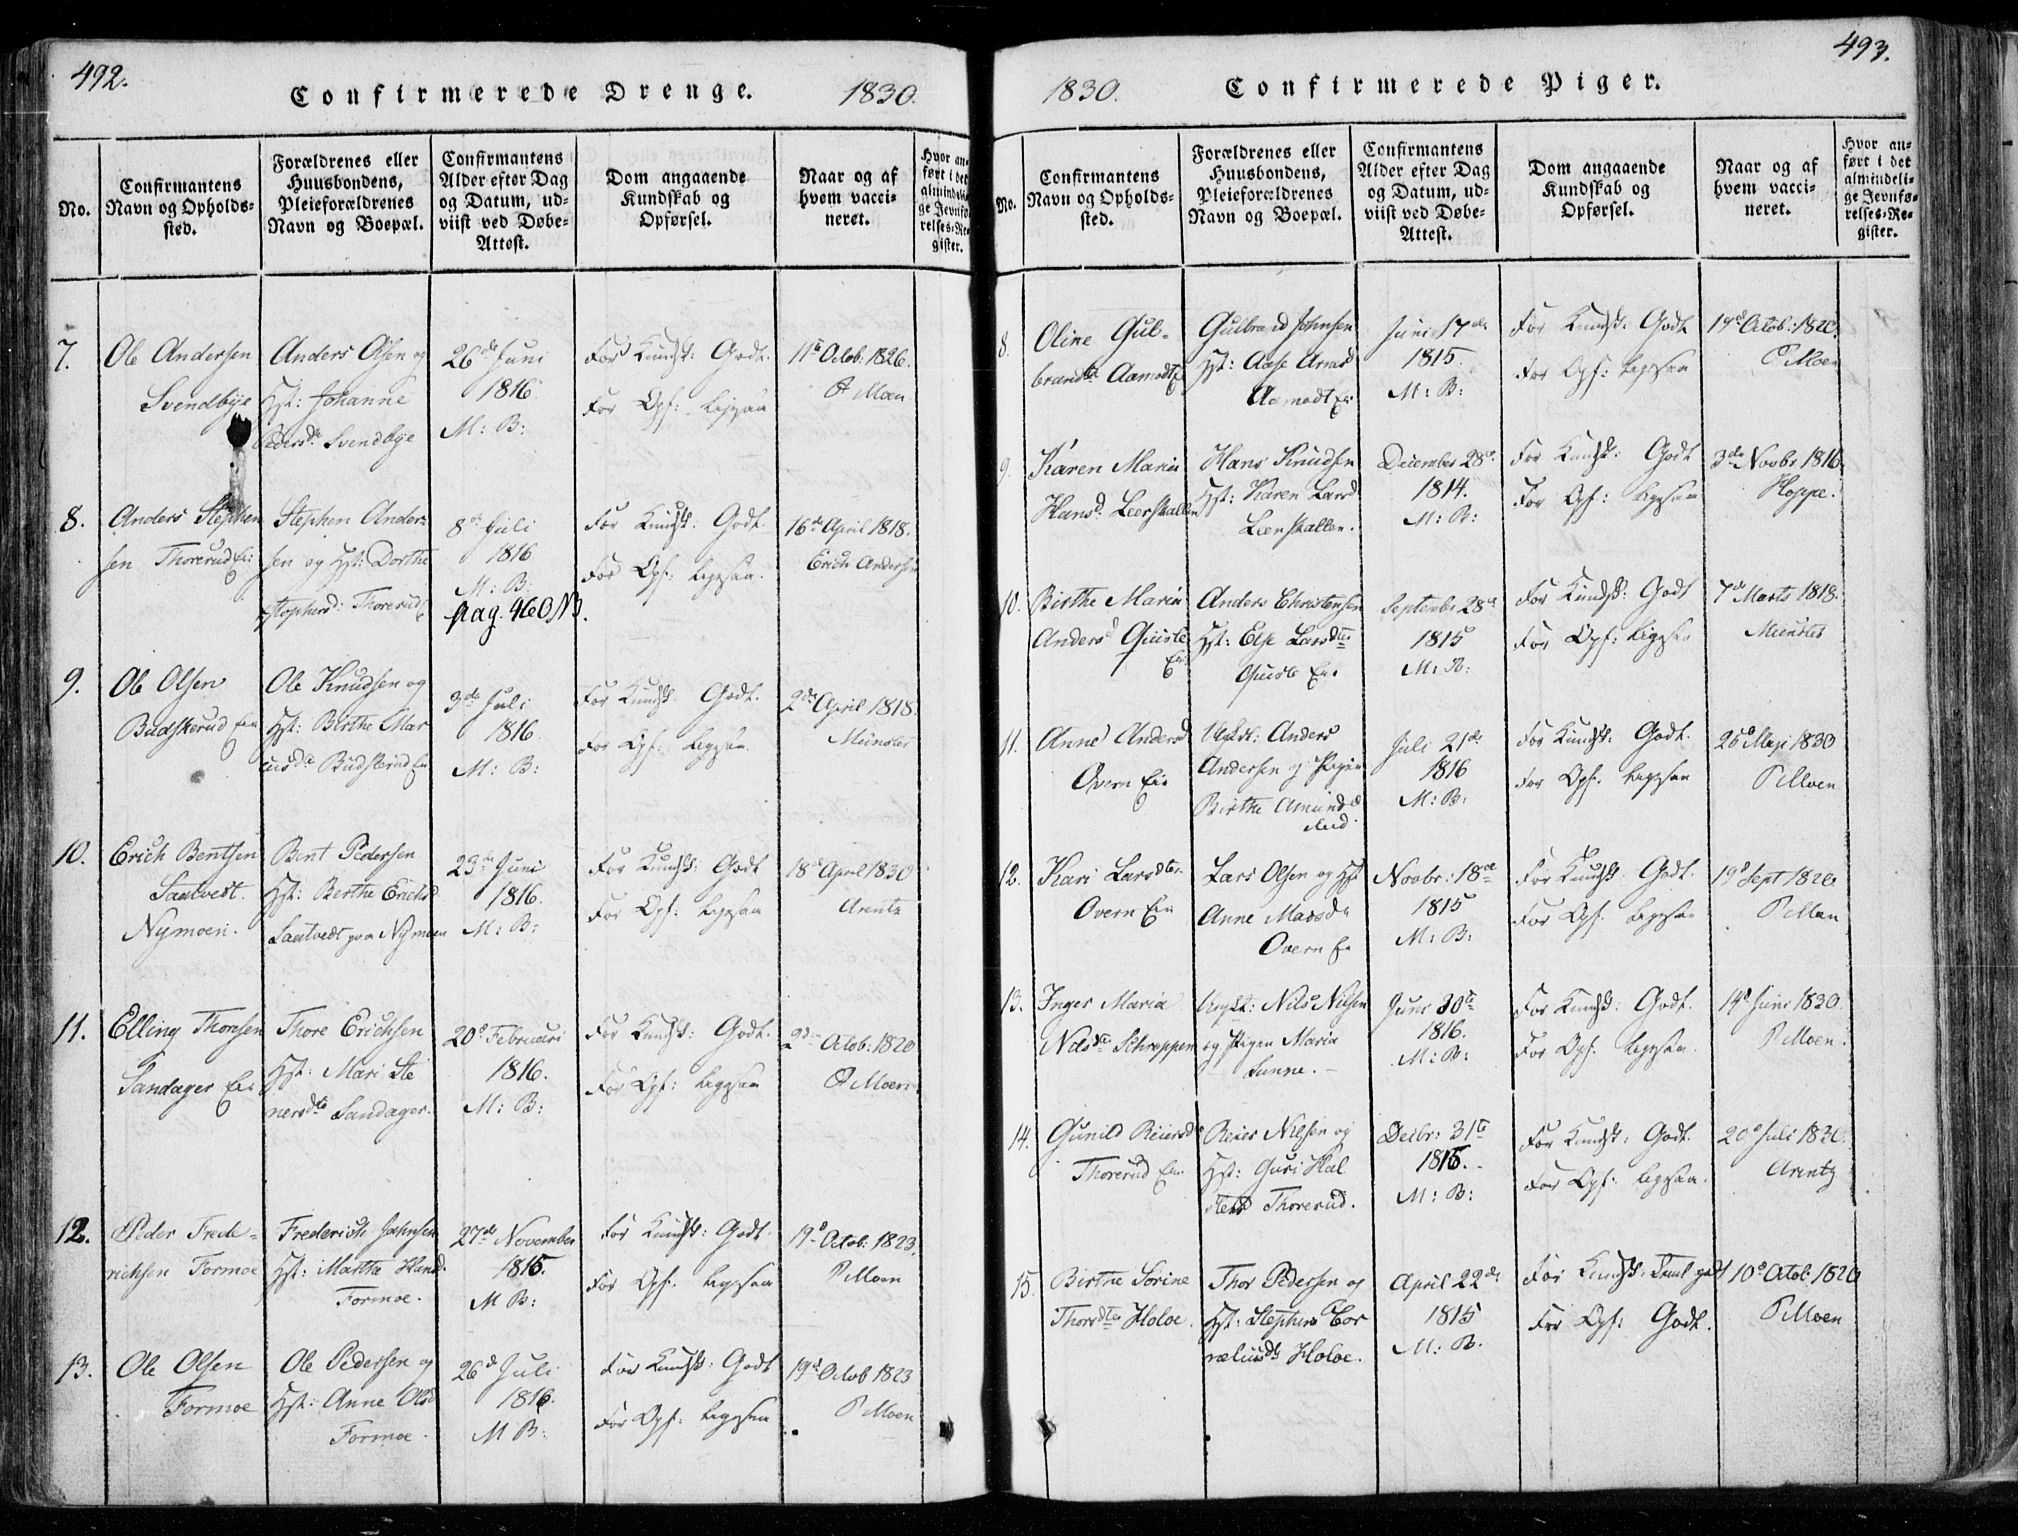 492.
Confirmerede Drenge. 1830.
No.
Confirmantens
Navn og Opholds-
sted.
Forældrenes eller
Huusbondens,
Pleieforældrenes
Navn og Boepæl.
Confirmantens
Alder efter Dag
og Datum, ud-
viist ved Døbe-
Attest.
Dom angaaende
Kundskab og
Opførsel.
Naar og af
hvem vacci-
neret.
Hvor an-
ført i det
almindeli-
ge Jevnfø-
relses-Re-
gister.
7.
Ole Andersen
Svendbye
Anders Olsen og
Hst: Johanne
Pedersd. Svendbye
26de Juni
1816.
M: B:
For Kundsk: Godt.
For Opf: ligesaa
11te Octob: 1826.
P Moen
8.
Anders Stephen
sen Thorerud Eie
Stephen Ander-
sen og Hst: Dorthe
Thorerud
8de Juli
1816
M: B:
pag. 460 N3.
For Kundsk: Godt
For Opf: ligesaa.
16de April 1818.
Erich Andersen
9.
Ole Olsen
Budskerud Eie
Ole Knudsen og
Hst: Birthe Mar
cusdr Budskerud Eie
3de Juli
1816.
M: B:
For Kundsk. Godt.
For Opf: ligesaa.
2de April 1818.
Münster
10.
Erich Bentsen
Saatvedt.
Nymoen.
Bent Pedersen
Hst: Berthe Erichsd
Saatvedt paa Nymoen
23de Juni
1816.
M: B:
For Kundsk: Godt
For Opf: ligesaa
18de April 1830
Arentz
11.
Elling Thoresen
Sandager Eie
Thore Erichsen
Hst: Mari Ste
nersdtr Sandager.
20de Februari
1816.
M: B:
For Kundsk: Godt.
For Opf: ligesaa
2de Octob: 1820
P Moen.
12.
Peder Frede-
richsen Formoe
Frederich Jahnsen
Hst: Marthe Hansd.
Formoe.
27de November
1815.
M B:
For Kundsk: Godt
For Opf. ligesaa
19de Octob: 1823.
P Moen
13.
Ole Olsen
Formoe
Ole Pedersen og
Hst: Anne Olsd
Formoe.
26de Juli
1816.
M B:
For Kundsk: Godt
For Opf: ligesaa
19de Octob 1823
P Moen
493.
1830. Confirmerede Piger.
No.
Confirmantens
Navn og Opholds-
sted.
Forældrenes eller
Huusbondens,
Pleieforældrenes
Navn og Boepæl.
Confirmantens
Alder efter Dag
og Datum, ud-
viist ved Døbe-
Attest.
Dom angaaende
Kundskab og
Opførsel.
Naar og af
hvem vacci-
neret.
Hvor an-
ført i det
almindeli-
ge Jevnfø-
relses-Re-
gister.
8.
Oline Gul-
brandsdtr Aamodt E
Gulbrand Johnsen
Hst: Aase Arnes
Aamodt Eie
Juni 17de
1815.
M: B:
For Kundsk: Godt
For Opf: ligesaa
19de Octob: 1820.
P Moen
9.
Karen Maria
Hansd. Leerskallen
Hans Knudsen
Hst: Karen Larsd
Leerskallen.
December 28de
1814.
M: B:
For Kundsk: Godt
For Opf: ligesaa
3de Novbr 1816.
Hoppe.
10.
Birthe Maria
Andersd Quisle
Eie
Anders Christensen
Hst: Else Larsdtr
Quisle Eie
September 28de
1815
M: B:
For Kundsk: Godt
For Opf: ligesaa
7de Marts 1818.
Münster
11.
Anne Andersd
Overn Eie
Ugkl: Anders
Andersen og Pigen
Birthe Amundsd
Juli 21de
1816
M: B:
For Kundsk: Godt.
For Opf. ligesaa
25de Maji 1830
P Moen
12.
Kari Larsdtr
Overn Eie
Lars Olsen og Hst
Anne Madsdr
Overn Eie
Novbr: 18de
1815
M: B:
For Kundsk. Godt.
For Opf. ligesaa
19de Sept 1820
P Moen
13.
Inger Maria
Nilsdr Schreppen
Ungkl: Nils Nielsen
og Pigen Maria
Sunne.
Juni 30te
1816.
M: B:
For Kundsk: Godt.
For Opf. ligesaa.
14de Juni 1830.
P Moen.
14.
Gunild Reiersdr
Thorerud Eie
Reier Nielsen og
Hst: Guri Hal
Thorerud.
Decbr: 31te
1815.
M: B:
For Kundsk: Godt.
For Opf. ligesaa.
20de Juli 1830.
Arentz
15.
Birthe Sorine
Thorsdtr Holoe.
Thor Pedersen og
Hst: Stephine Cor
neliusdtr Holoe.
April 22de
1815
M: B.
For Kundsk. Temmelig godt
For Opf: Godt.
10de Octob: 1820
P Moen